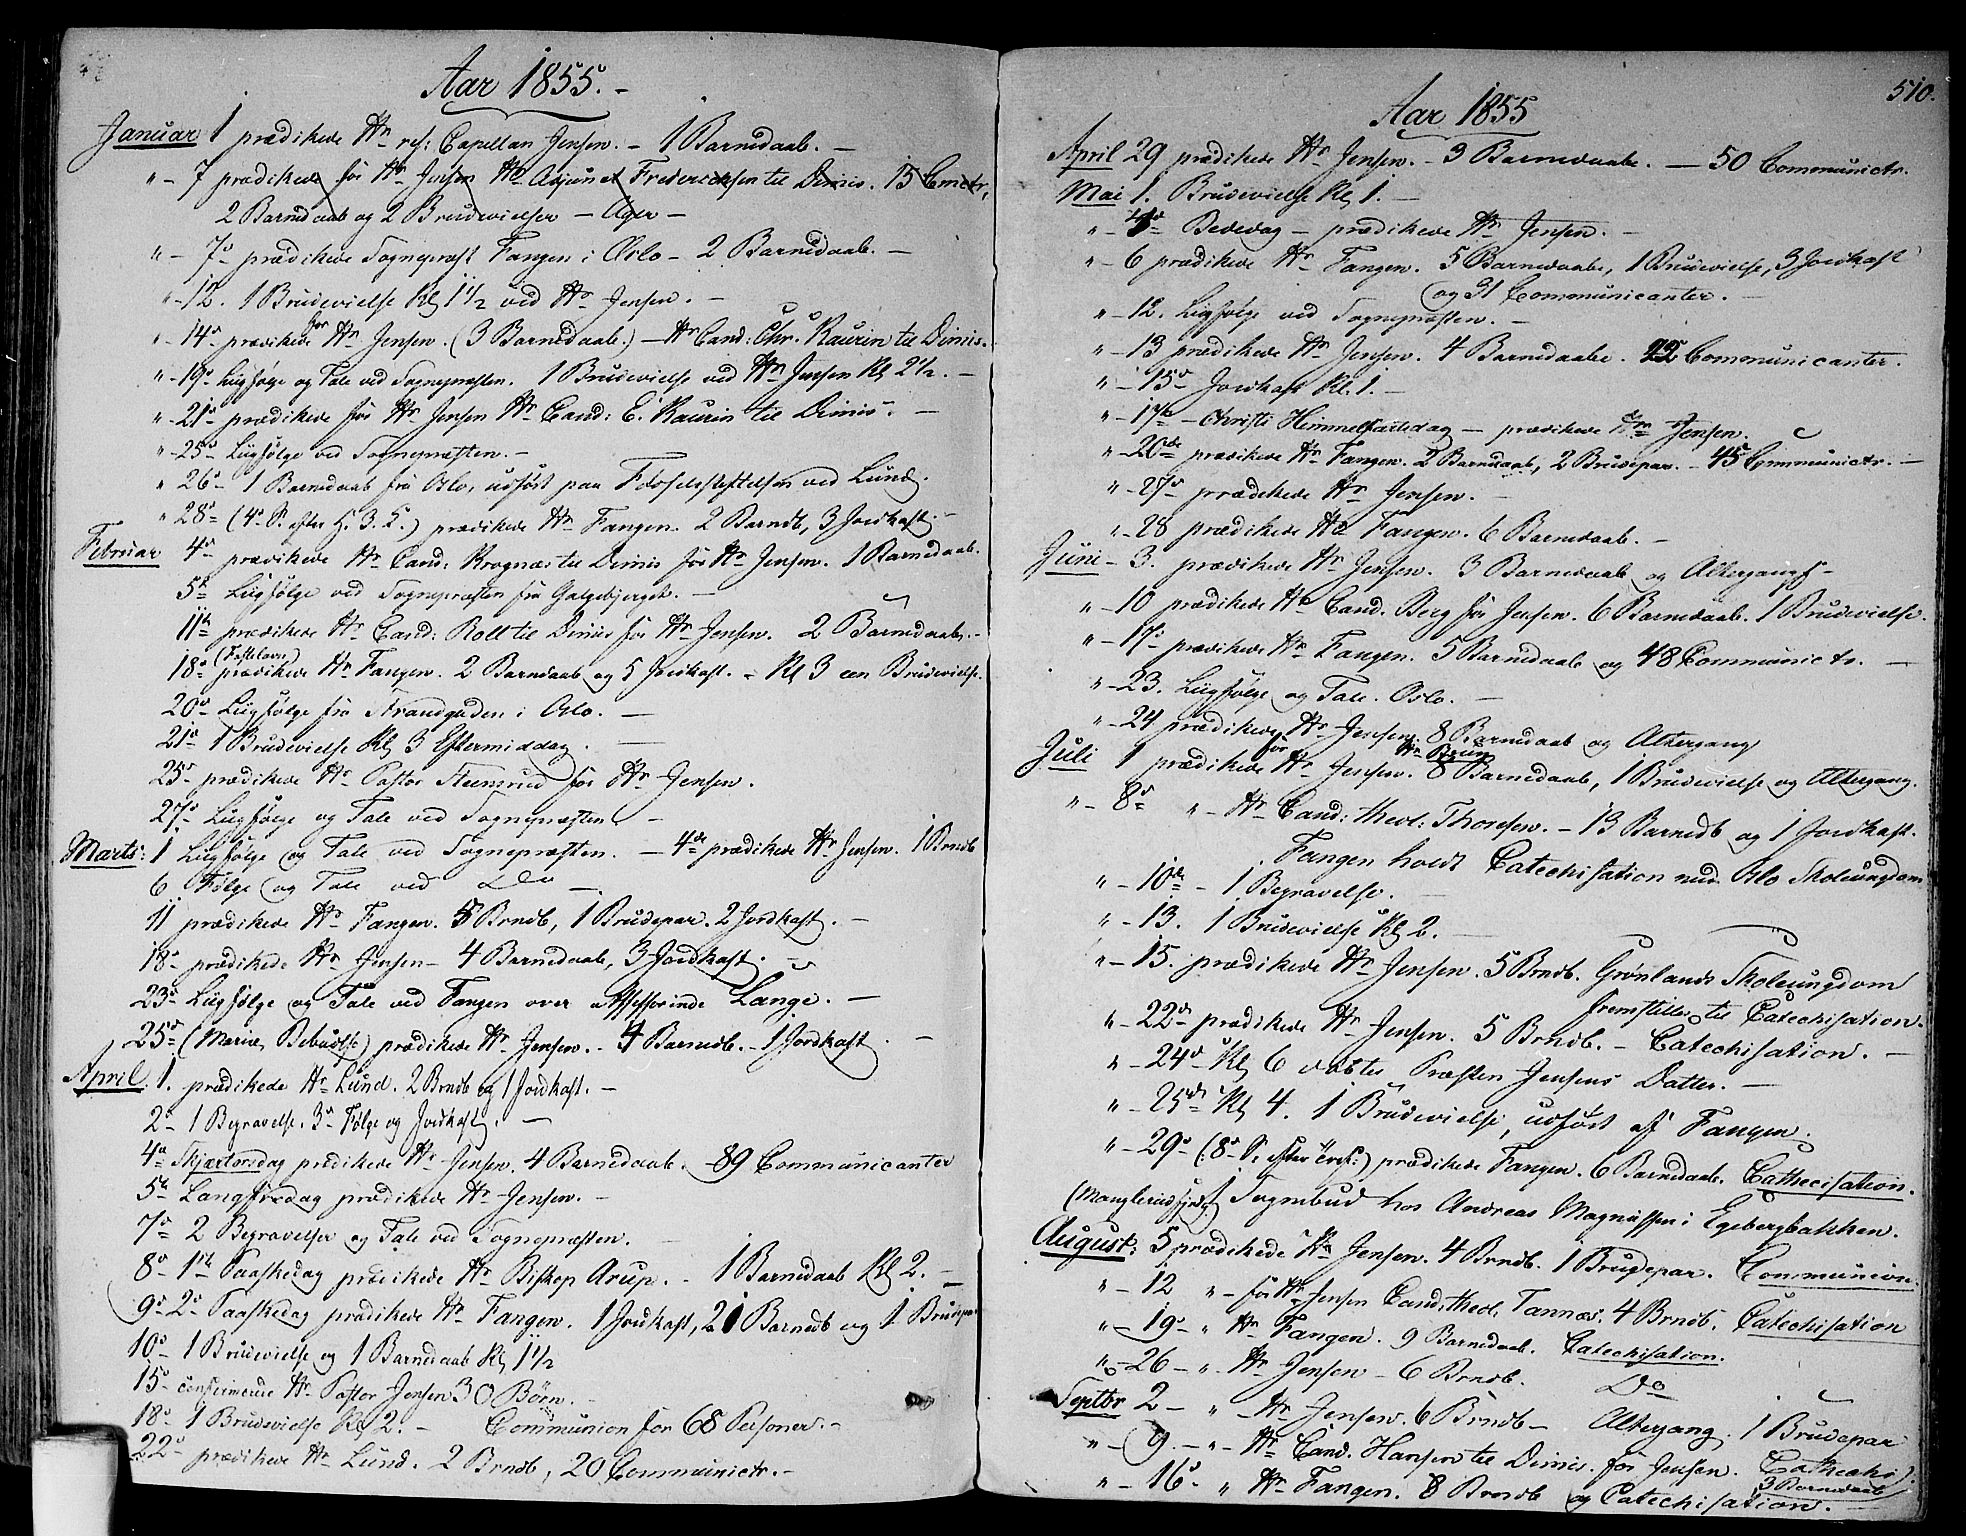 Aar 1855.-
Januar 1 prædikede Hr res: Capellan Jensen. - 1 Barnedaab. -
" - 7 prædikede for Hr Jensen Hr Adjunct Fredericksen til Dimis. 15 Cmctr,
2 Barnedaab og 2 Brudevielser - Ager -
" - 7de prædikede Sognepræst Fangen i Oslo - 2 Barnedaab. -
" - 12. 1 Brudevielse Kl 1 1/2 ved Hr Jensen. -
" - 14de prædikede for Hr Jensen. (3 Barnedaab.) - Hr Cand: Chr. Kaurin til Dimis.
" - 19de Liigfølge og Tale ved Sognepræsten. 1 Brudevielse ved Hr Jensen Kl 2 1/2. -
" - 21de prædikede for Hr Jensen Hr Cand: E. Kaurin til Dimis. -
" - 25de Liigfølge ved Sognepræsten. -
" 26de - 1 Barnedaab fra Oslo, udført paa Fødselsstiftelsen ved Lund.
" 28de (4de S. efter H. 3. K.) prædikede Hr Fangen. 2 Barndb, 3 Jordkast. -
Februar 4de prædikede Hr Cand: Krognæs til Dimis for Hr Jensen. 1 Barnedaab.
5te Liigfølge ved Sognepræsten fra Galgebjerget. -
11te prædikede Hr Cand: Roll til Dimis for Hr Jensen. 2 Barnedaab. -
18de (Fastelavn) prædikede Hr Fangen. 2 Barndaab og 5 Jordkast. - Kl 3 een Brudevielse.
20de Liigfølge fra Strandgaden i Oslo. -
21de 1 Brudevielse Kl 3 Eftermiddag. -
25de prædikede Hr Pastor Steensrud for Hr Jensen.
27de Liigfølge og Tale ved Sognepræsten. -
Marts: 1 Liigfølge og Tale ved Sognepræsten. - 4de prædikede Hr Jensen. 1 Brndb
6 Følge og Tale ved Do -
11 prædikede Hr Fangen. 5 Brndb, 1 Brudepar. 2 Jordkast. -
18de prædikede Hr Jensen - 4 Barnedaab, 3 Jordkast. -
23de Liigfølge og Tale ved Fangen over Assessorinde Lange. -
25de (Mariæ Bebudlse) prædikede Hr Jensen. - 4 Barnedb. - 1 Jordkast. -
April. 1. prædikede Hr Lund. 2 Brndb og 1 Jordkast. -
2de 1 Begravelse. 3de Følge og Jordkast. -
4de Skjærtorsdag prædikede Hr Jensen. 4 Barnedaab. - 89 Communicanter
5te Langfredag prædikede Hr Jensen. -
7de 2 Begravelser og Tale ved Sognepræsten. -
8de 1ste Paaskedag prædikede Hr Biskop Arup. - 1 Barnedaab Kl 2. -
9de 2de Paaskedag prædikede Hr Fangen. 1 Jordkast, 21 Barnedb og 1 Brudepar
10de 1 Brudevielse og 1 Barnedaab Kl 1 1/2
15de confirmerede Hr Pastor Jensen 30 Børn. -
18de 1 Brudevielse Kl 2. - Communion for 68 Personer. -
22de prædikede Hr Lund. 2 Brndb, 20 Communictr. -
510.
Aar 1855
April 29 prædikede Hr Jensen. - 3 Barnedaabe. - 50 Communictr.
Mai 1. Brudevielse Kl 1. -
" - 4de Bededag - prædikede Hr Jensen. -
" - 6 prædikede Hr Fangen. 5 Barnedaabe, 1 Brudevielse, 3 Jordkast
og 31 Communicanter. -
" - 12. Liigfølge ved Sognepræsten. -
" - 13 prædikede Hr Jensen. 4 Barnedaabe. Communicanter.
" - 15de Jordkast Kl. 1. -
" - 17de - Christi Himmelfartsdag - prædikede Hr Jensen.
" - 20de prædikede Hr Fangen. 2 Barndaab, 2 Brudepar. - 45 Communictr. -
" - 27de prædikede Hr Jensen. -
" - 28 prædikede Hr Fangen. 6 Barnedaab. -
Juni - 3. prædikede Hr Jensen. 3 Barnedaab og Altergang. -
" - 10 prædikede Hr Cand. Berg for Jensen. 6 Barnedaab. 1 Brudevielse.
" - 17de prædikede Hr Fangen. 5 Barnedaab og 48 Communictr. -
" - 23. Liigfølge og Tale. Oslo. -
" - 24 prædikede Hr Jensen. 8 Barnedaab og Altergang
Juli 1 prædikede for Hr Jensen Hr Bruun. 8 Barnedaab, 1 Brudevielse og Altergang.
" - 8de " - Hr Cand: theol: Thoresen. - 13 Barnedb og 1 Jordkast.
Fangen holdt Catechisation med Oslo Skoleungdom
" - 10de - 1 Begravelse. -
" - 13. 1 Brudevielse Kl 2. -
" - 15. prædikede Hr Jensen. 5 Brndb. Grønlands Skoleungdom
fremstilles til Catechisation.
" - 22de prædikede Hr Jensen. 5 Brndb. - Catechisation. -
" - 24de Kl 6 døbtes Præsten Jensens Datter. -
" - 25de Kl 4. 1 Brudevielse, udført af Fangen.
" - 29de (8de S: efter Tref:) prædikede Fangen. 6 Barnedaab. Cathecisation.
1 Sognebud hos Andreas Magnussen i Egebergbakken.
August: 5 prædikede Hr Jensen. 4 Brndb. 1 Brudepar. Communion.
" - 12 " - for Hr Jensen Cand. theol. Tannæs. 4 Brndb. Catechisation
" - 19de " Hr Fangen. 9 Barnedaab. Catechisation.
" - 26 - " Hr Jensen - 6 Brndb. Do
Septbr 2 - " - Hr Jensen. 6 Brndb - Altergang. 1 Brudepar
" - 9. - " - Hr Cand. Hansen til Dimis. for Jensen. Cathechis. 3 Barnedaab
" - 16de " Hr Fangen. 8 Brndb og Catechisation. -